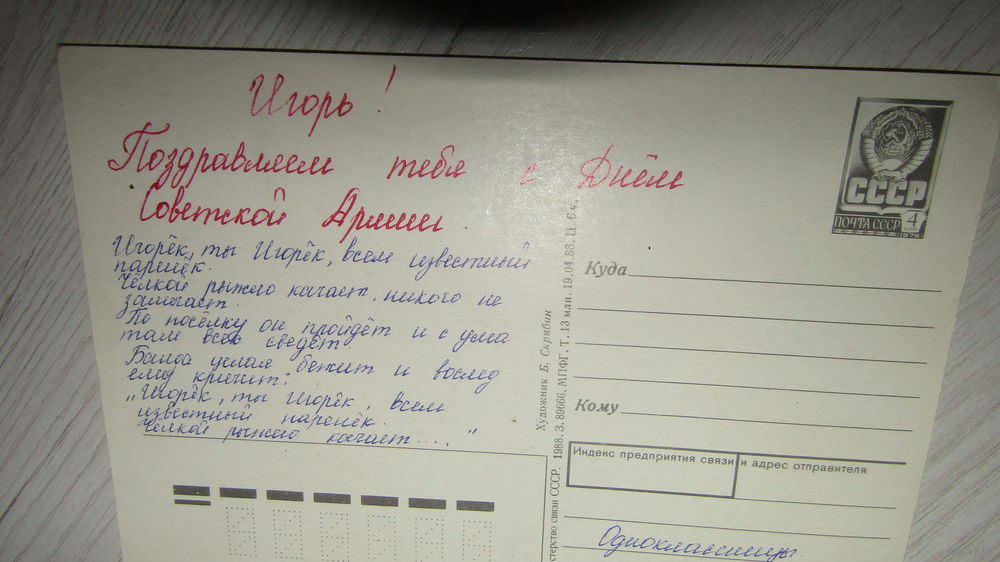 Игорь!
Поздравляем тебя с Днём
Советской Армии
Игорёк, ты Игорёк, всем известный
паренёк.
Чёлкой рыжею качает, никого не
замечает.
По посёлку он пройдёт и с ума
там всех сведёт
Банда целая бежит и вослед
ему кричит:
„Игорёк, ты Игорёк, всем
известный паренёк.
Чёлкой рыжею качает...."
СССР
ПОЧТА СССР
4
1976
Куда
Кому
Индекс предприятия связи и адрес отправителя
Одноклассницы
Художник Б. Скрябин
стерство связи СССР. 1988. З. 89666. МПФГ. Т. 13 млн. 19.04.88. Ц. 6 к.